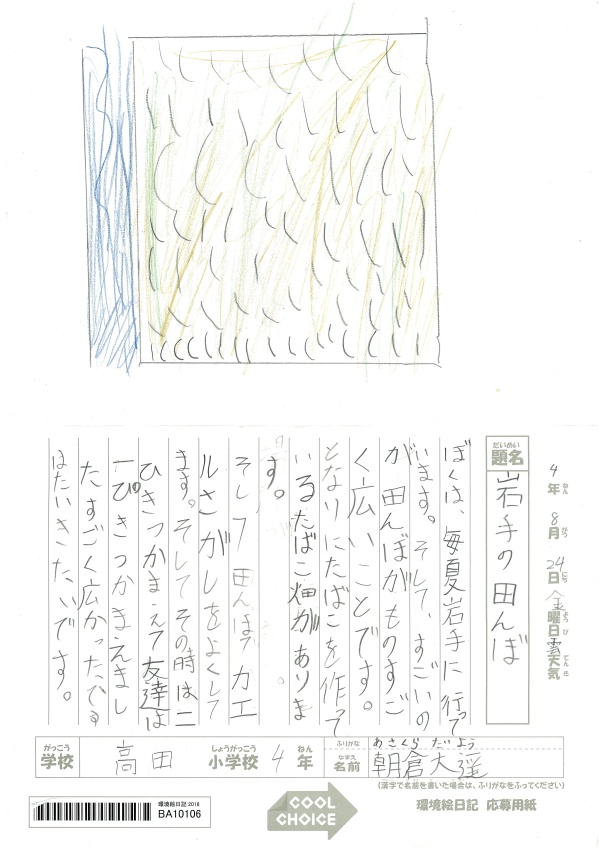 4年 8月 24日 金曜日 雲天気
ねん がつ にち ようび てんき
だいめい
題名 岩手の田んぼ
ぼくは、毎夏岩手に行って
います。そして、すごいの
が田んぼがものすご
く広いことです。
となりにたばこを作って
いるたばこ畑がありま
す。
そして田んぼでカエ
ルさがしをよくして
ます。そしてその時は二
ひきつかまえて友達は
一ぴきつかまえまし
たすごく広かったでる
はたいきたいです。
がっこう しょうがっこう ねん
学校 高田 小学校 4年
ふりがな あさくら だいよう
なまえ
名前 朝倉大遥
(漢字で名前を書いた場合は、ふりがなをふってください)
環境絵日記 応募用紙
環境絵日記 2018
BA10106
COOL
CHOICE